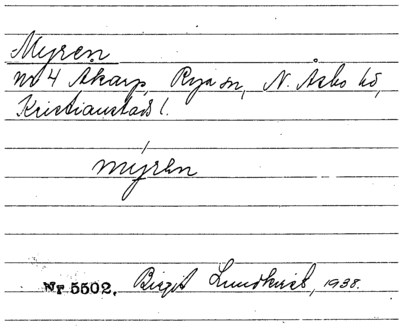 Myren
nr 4 Åkarp, Rya sn, N. Åsbo hd,
Kristianstads l.
mýren
Nr 5502. Birgit Lundkvist, 1938.